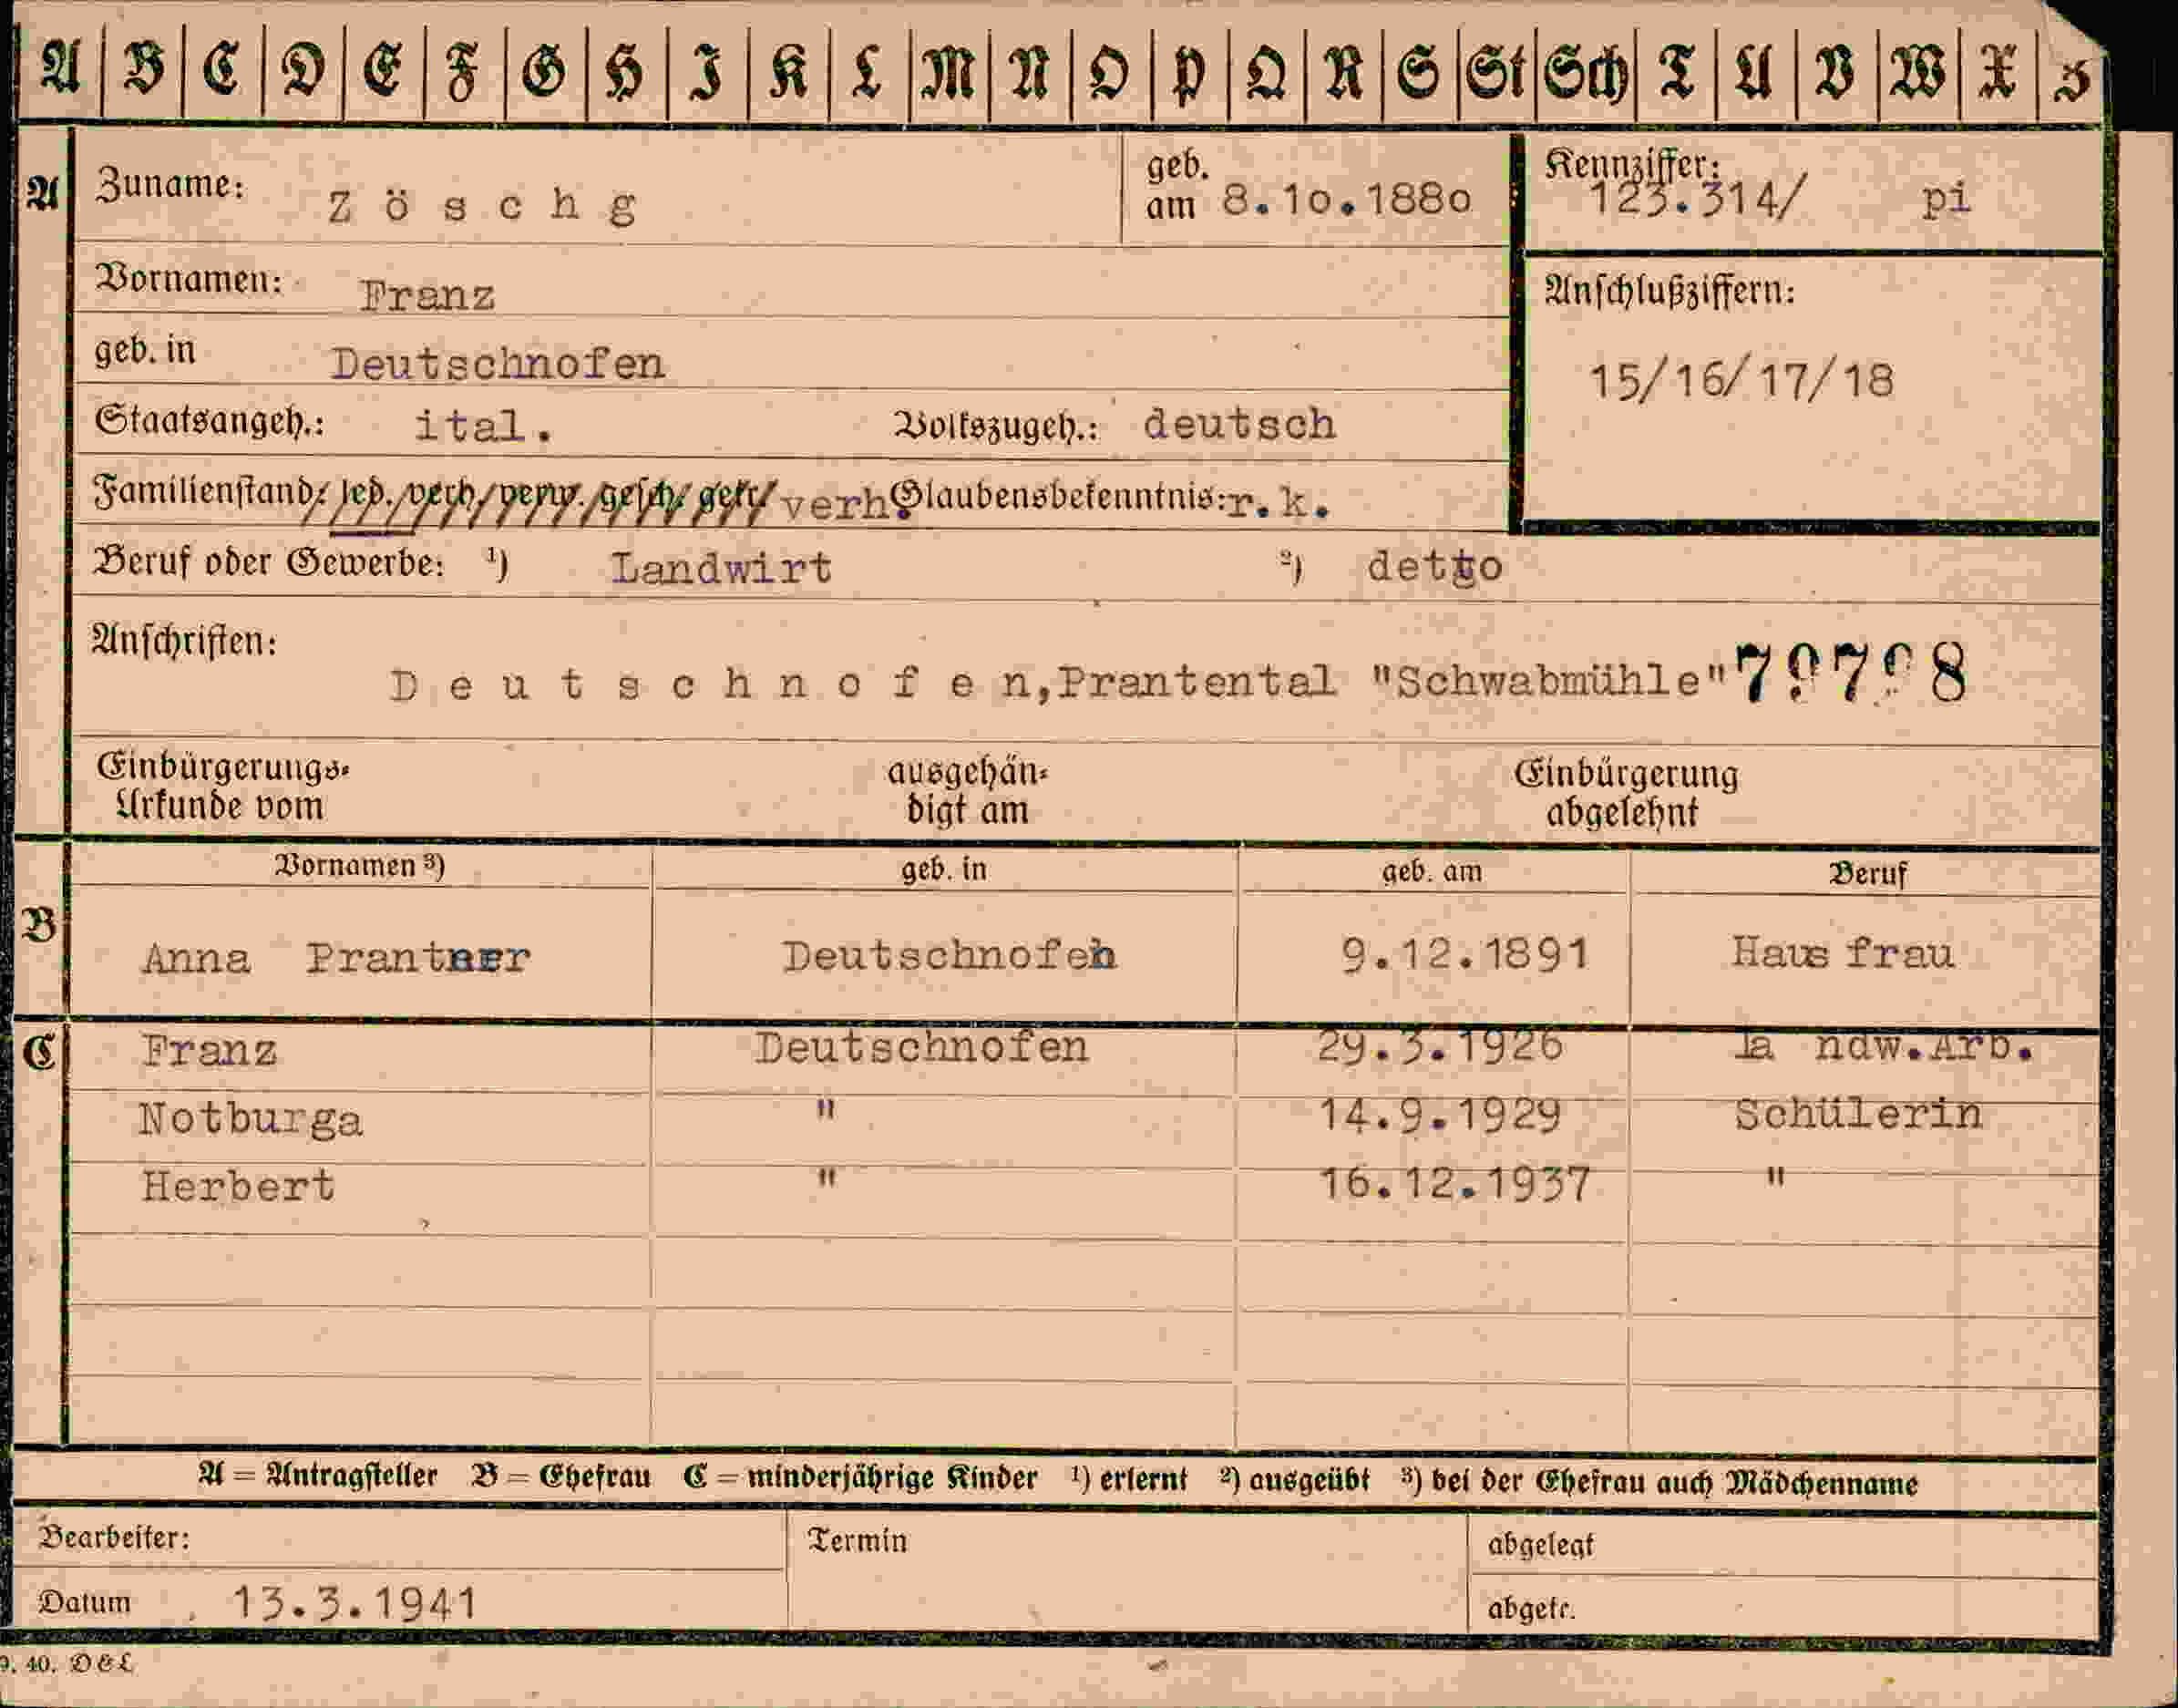 A B C D E F G H I K L M N O P Q R S St Sch T U V W X Z
A Zuname: Zöschg geb. am 8.10.1880 Kennziffer: 123.314/ pi
Vornamen: Franz Anschlußziffern:
geb. in Deutschnofen 15/16/17/18
Staatsangeh.: ital. Volkszugeh.: deutsch
Familienstand: led. verh. verw. gesch. getr. verh. Glaubensbekenntnis: r.k.
Beruf oder Gewerbe: ¹) Landwirt ²) detto
Anschriften:
Deutschnofen, Prantental "Schwabmühle"
Einbürgerungs- ausgehän- Einbürgerung
Urkunde vom digt am abgelehnt
Vornamen ³) geb. in geb. am Beruf
B
Anna Prantner Deutschnofen 9.12.1891 Hausfrau
C Franz Deutschnofen 29.3.1926 landw.Arb.
Notburga " 14.9.1929 Schülerin
Herbert " 16.12.1937 "
A = Antragsteller B = Ehefrau C = minderjährige Kinder ¹) erlernt ²) ausgeübt ³) bei der Ehefrau auch Mädchenname
Bearbeiter: Termin abgelegt
Datum 13.3.1941 abgetr.
9. 40. D & L